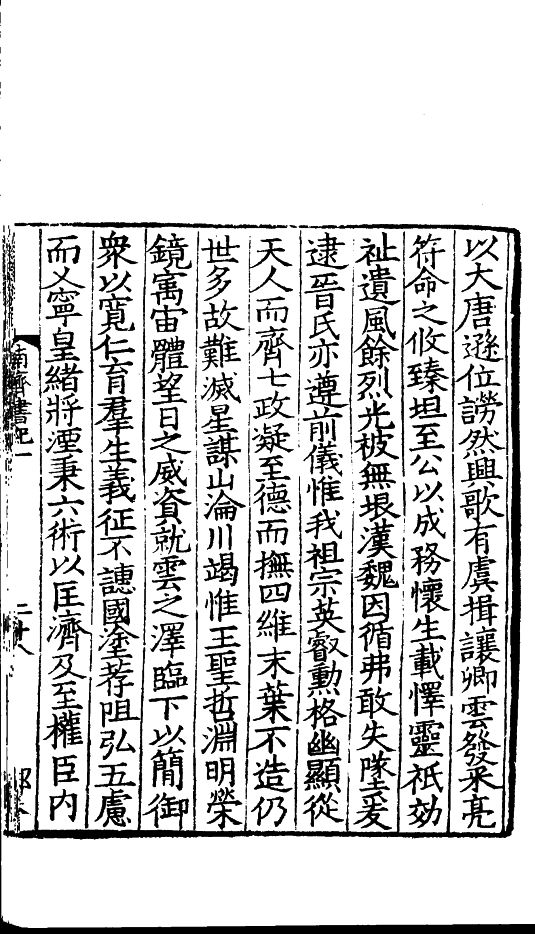 以大唐遜位謗然興歌有虞揖讓卿雲發采亮
符命之攸臻坦至公以成務懷生載懌靈祇効
祉遺風餘烈光被無垠漢魏因循弗敢失墜爰
逮晉氏亦遵前儀惟我祖宗英叡勲格幽顯從
天人而齊七政凝至德而撫四維末葉不造仍
世多故難滅星謀山淪川竭惟王聖哲淵明榮
鏡寓宙體望日之威資就雲之澤臨下以簡御
衆以寛仁育羣生義征不譓國塗荐阻弘五慮
而乂寧皇緒將湮秉六術以匡濟及至權臣内
南齊書紀一
二十八